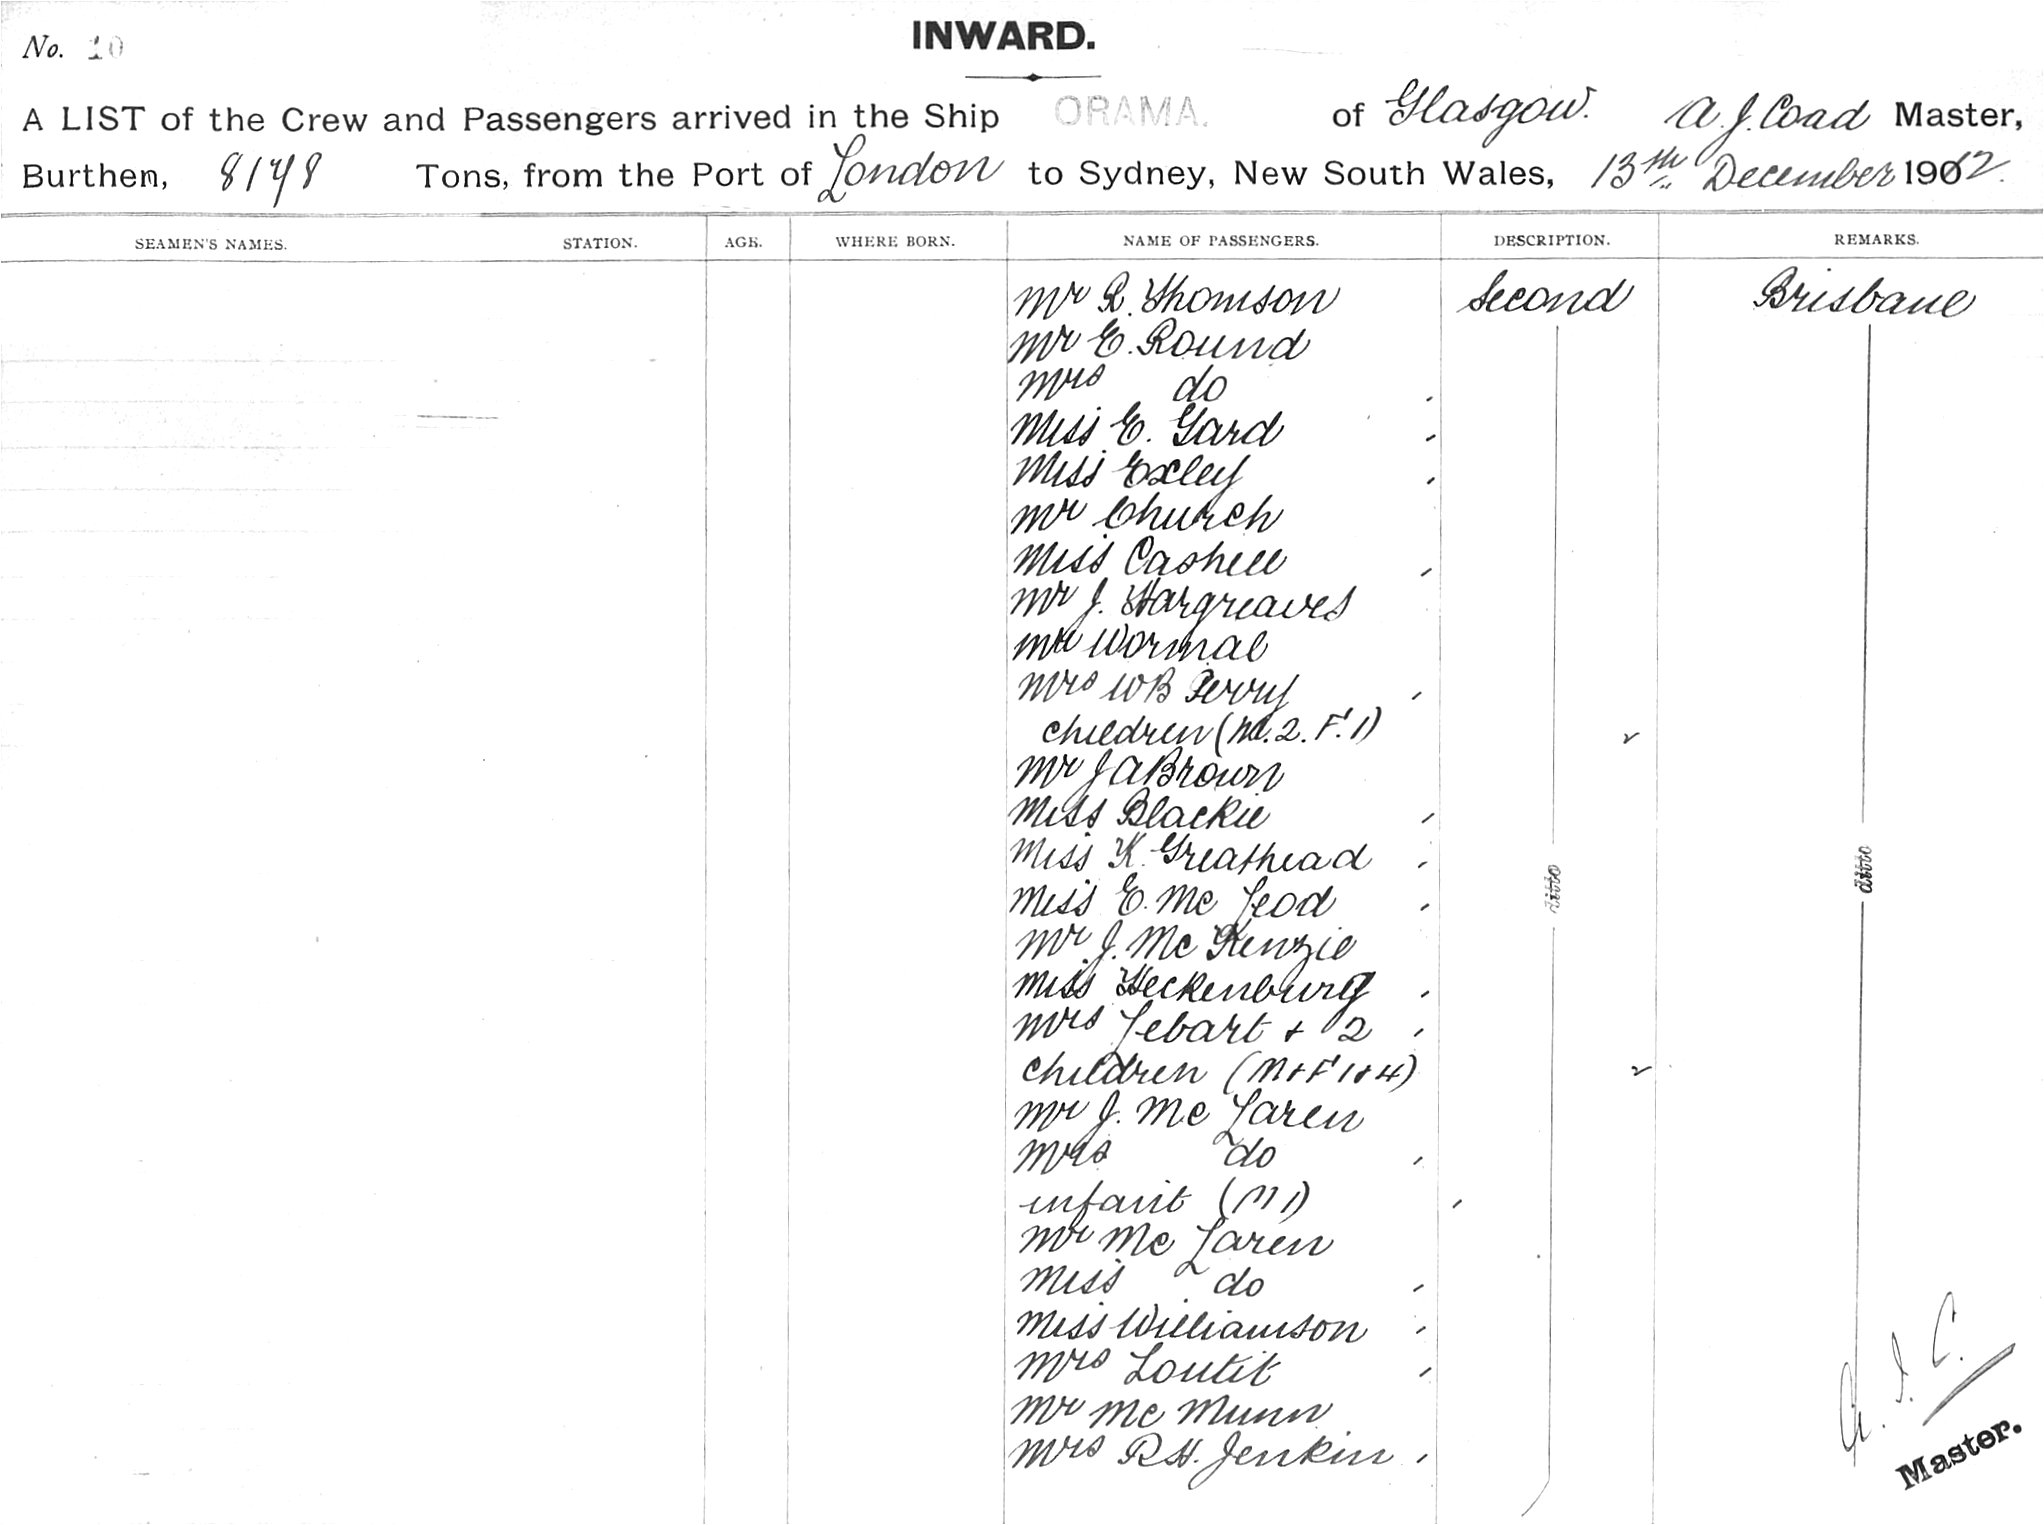 No. 10
INWARD.
A LIST of the Crew and Passengers arrived in the Ship ORAMA. of Glasgow. A. J. Coad Master,
Burthen, 8148 Tons, from the Port of London to Sydney, New South Wales, 13th December 1912.
SEAMEN'S NAMES. STATION. AGE. WHERE BORN. NAME OF PASSENGERS. DESCRIPTION. REMARKS.
Mr R. Thomson Second Brisbane
Mr E. Round
Mrs do
Miss E. Gard
Miss Exley
Mr Church
Miss Cashell
Mr J. Hargreaves
Mr Wormal
Mrs WB Perry
children (M. 2. F. 1)
Mr J A Brown
Miss Blackie
Miss K. Greathead ditto ditto
Miss E. Mc Leod
Mr J. Mc Kenzie
Miss Heckenburg
Mrs Lebart + 2
children (M + F 1 + 4)
Mr J. Mc Laren
Mrs do
infant (M 1)
Mr Mc Laren
Miss do
Miss Williamson
Mrs Loutit
Mr Mc Munn
Mrs R H. Jenkin
A. J. C.
Master.